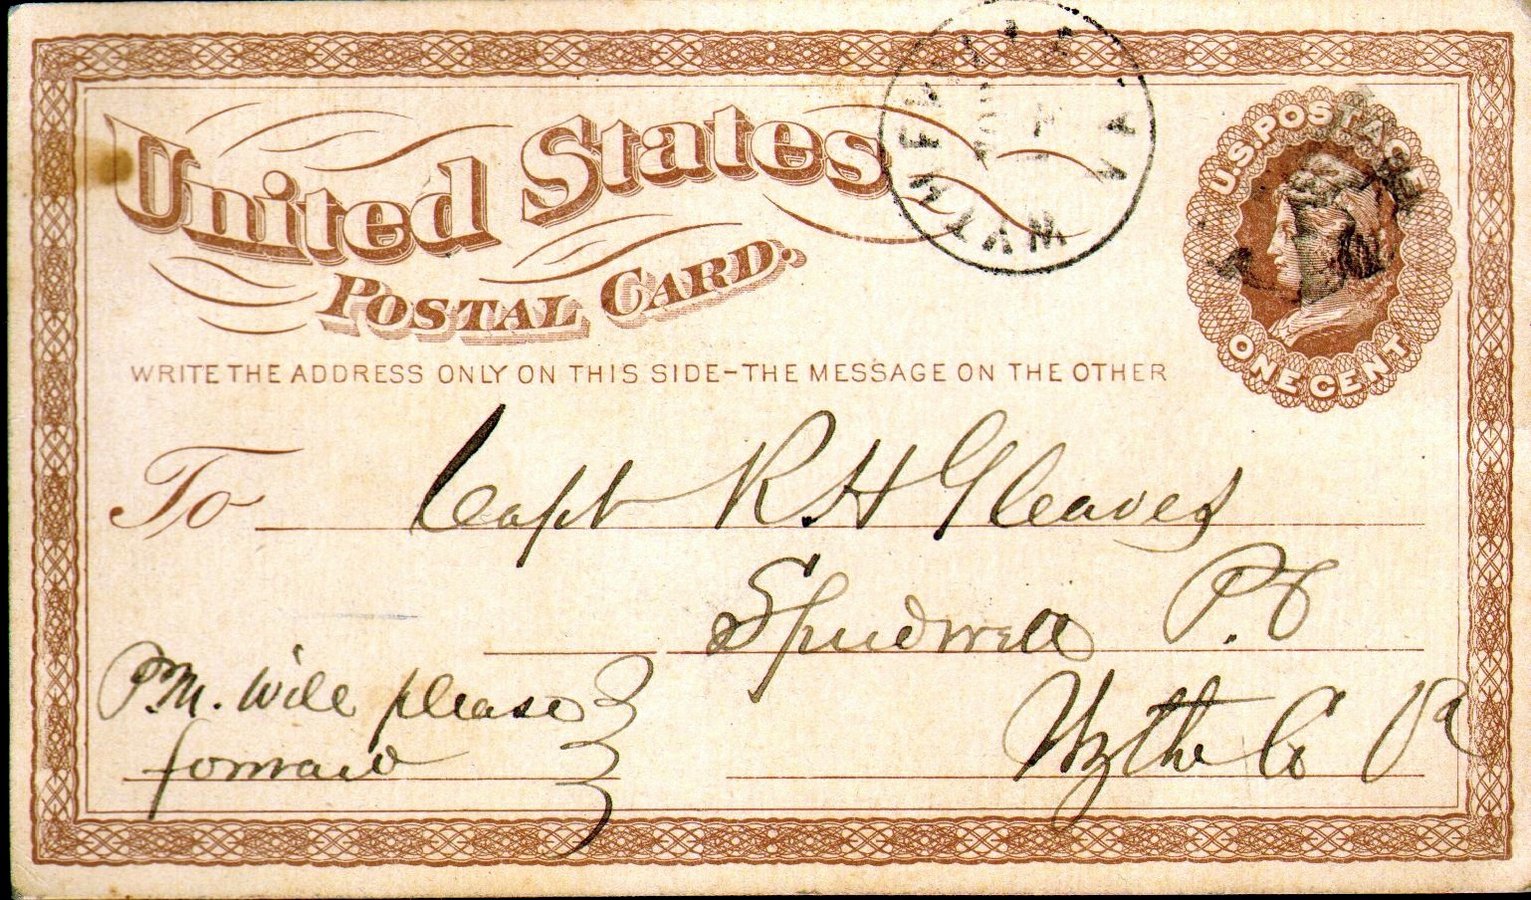 United States
POSTAL CARD.
WYTHEVILLE VA.
NOV
U.S. POSTAGE
ONE CENT
WRITE THE ADDRESS ONLY ON THIS SIDE-THE MESSAGE ON THE OTHER
To Capt R. H Gleaves
Speedwell P. O
P.M. will please
forward
Wythe Co Va